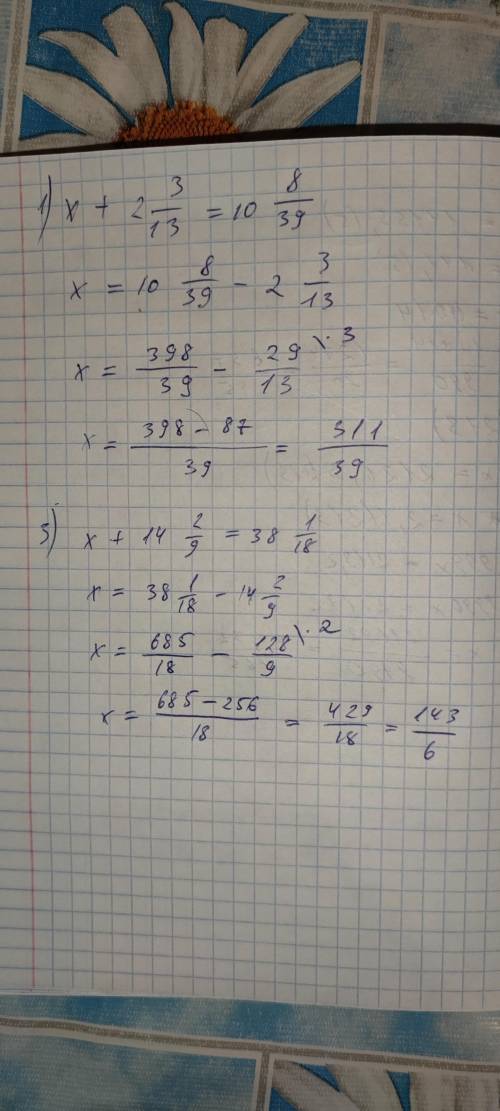 1) x + 2 3/13 = 10 8/39
x = 10 8/39 - 2 3/13
x = 398/39 - 29/13 \·3
x = (398 - 87)/39 = 311/39
3) x + 14 2/9 = 38 1/18
x = 38 1/18 - 14 2/9
x = 685/18 - 128/9 \·2
x = (685 - 256)/18 = 429/18 = 143/6